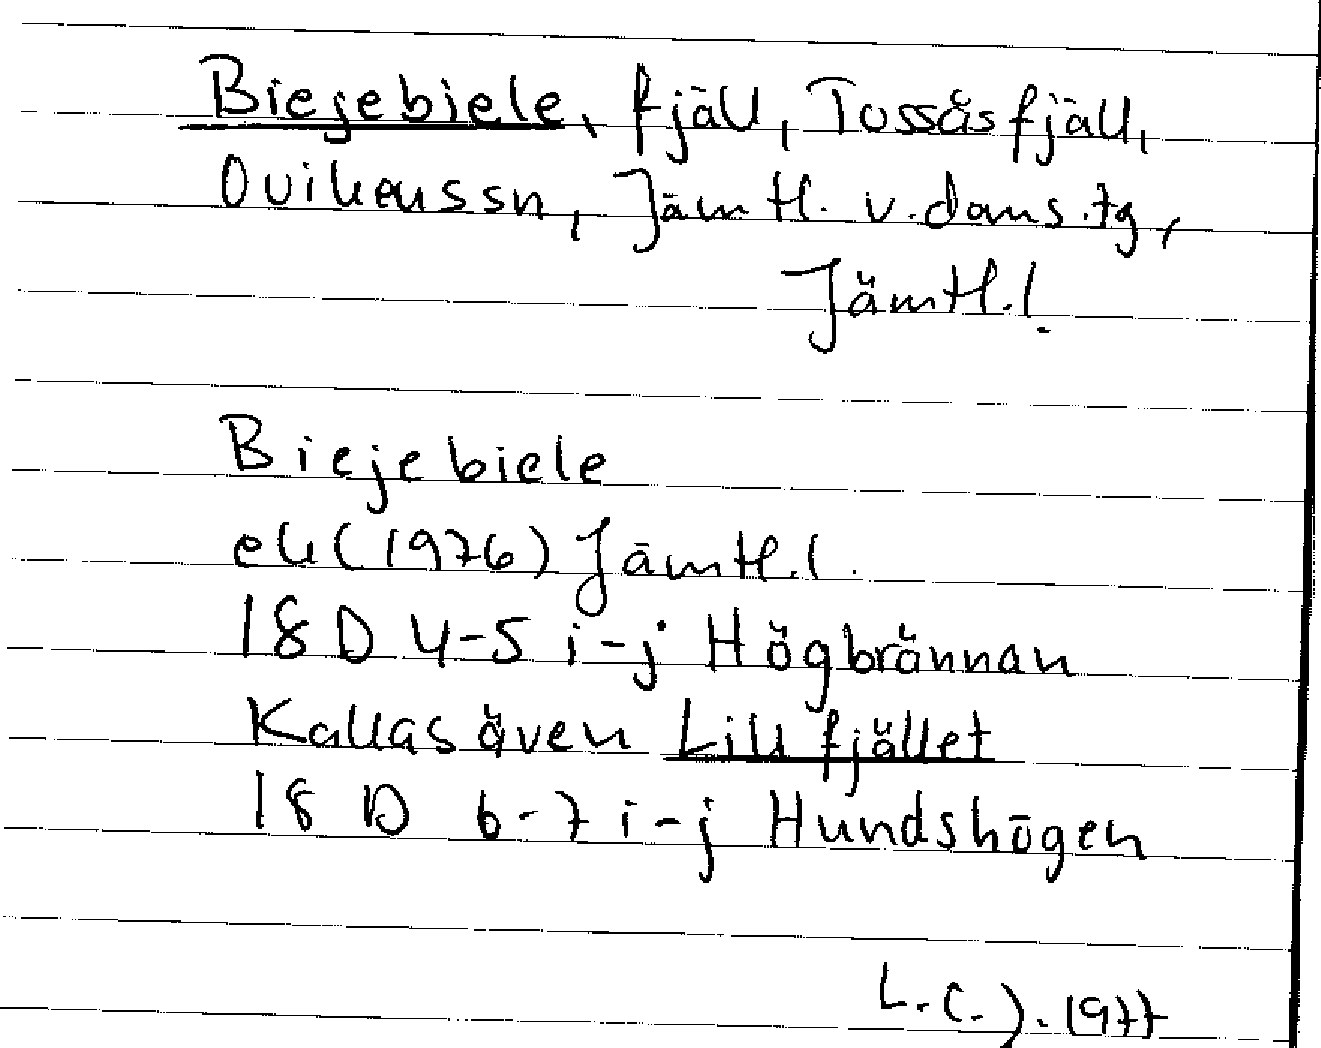 Biejebiele, fjäll, Tossåsfjäll,
Ovikens sn, Jämtl. v. doms. tg,
Jämtl. l.
Biejebiele
ek (1976) Jämtl. l.
18 D 4-5 i-j Högbrännan
Kallas även Lillfjället
18 D 6-7 i-j Hundshögen
L.C.J. 1977